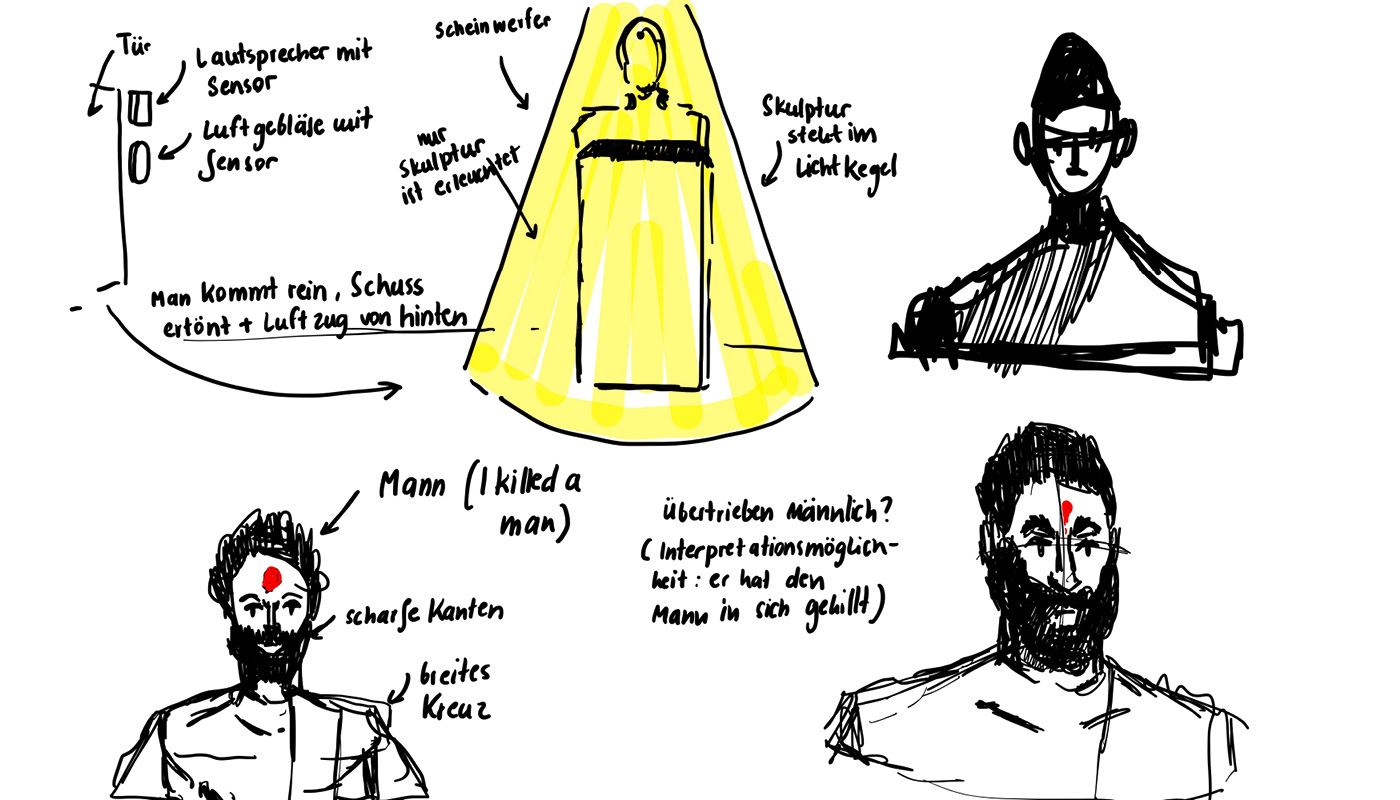 Tür
Lautsprecher mit
Sensor
Luftgebläse mit
Sensor
Scheinwerfer
nur
Skulptur
ist erleuchtet
Skulptur
steht im
Lichtkegel
Man kommt rein, Schuss
ertönt + Luftzug von hinten
Mann (I killed a
man)
scharfe Kanten
breites
Kreuz
übertrieben männlich?
(Interpretationsmöglich-
keit: er hat den
Mann in sich gekillt)